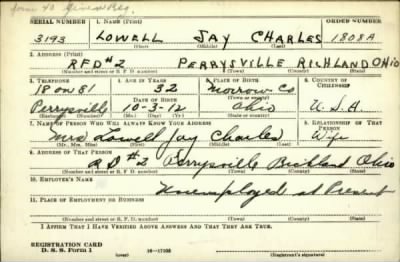 form 40
SERIAL NUMBER 1. NAME (Print) ORDER NUMBER
3193 LOWELL JAY CHARLES 1808A
(First) (Middle) (Last)
2. ADDRESS (Print)
RFD#2 PERRYSVILLE RICHLAND OHIO
(Number and street or R. F. D. number) (Town) (County) (State)
3. TELEPHONE 4. AGE IN YEARS 5. PLACE OF BIRTH 6. COUNTRY OF CITIZENSHIP
18 on 81 32 Morrow Co
(Town or county)
DATE OF BIRTH
Perrysville 10-3-12 Ohio U.S.A.
(Exchange) (Number) (Mo.) (Day) (Yr.) (State or country)
7. NAME OF PERSON WHO WILL ALWAYS KNOW YOUR ADDRESS 8. RELATIONSHIP OF THAT PERSON
Mrs Lowell Jay Charles Wife
(Mr., Mrs., Miss) (First) (Middle) (Last)
9. ADDRESS OF THAT PERSON
RD#2 Perrysville Richland Ohio
(Number and street or R. F. D. number) (Town) (County) (State)
10. EMPLOYER'S NAME
Unemployed at Present
11. PLACE OF EMPLOYMENT OR BUSINESS
(Number and street or R. F. D. number) (Town) (County) (State)
I AFFIRM THAT I HAVE VERIFIED ABOVE ANSWERS AND THAT THEY ARE TRUE.
REGISTRATION CARD
D. S. S. Form 1 (over) 16—17105 (Registrant's signature)